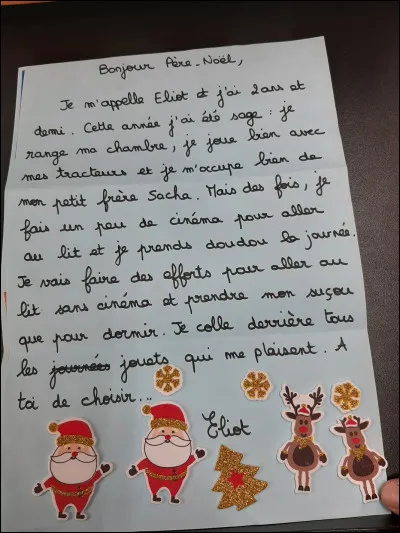 Bonjour Père-Noël,
Je m'appelle Eliot et j'ai 2ans et
demi. Cette année j'ai été sage : je
range ma chambre, je joue bien avec
mes tracteurs et je m'occupe bien de
mon petit frère Sacha. Mais des fois, je
fais un peu de cinéma pour aller
au lit et je prends doudou la journée.
Je vais faire des efforts pour aller au
lit sans cinéma et prendre mon suçou
que pour dormir. Je colle derrière tous
les journées jouets qui me plaisent. A
toi de choisir...
Eliot